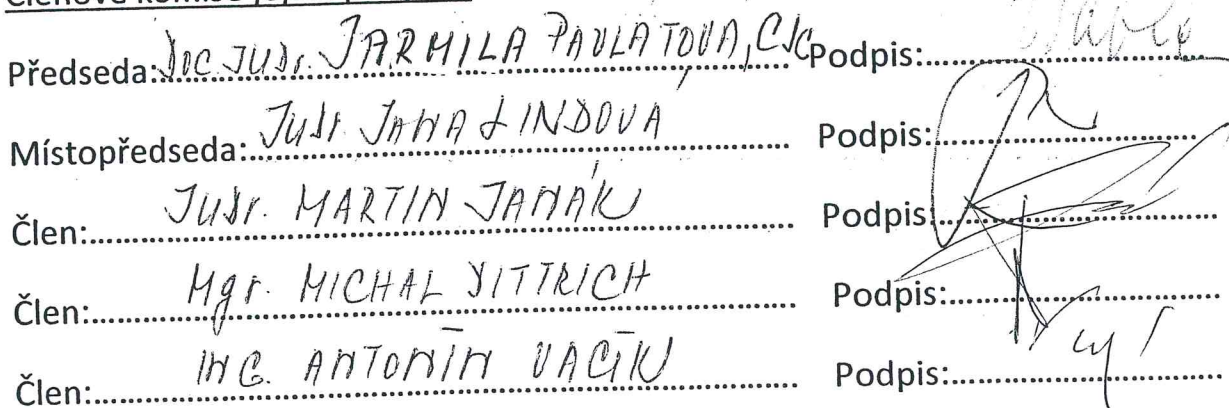 Předseda: Doc. JUDr. JARMILA PAVLATOVÁ, CSc Podpis:
Místopředseda: JUDr. JANA LINDOVÁ Podpis:
Člen: JUDr. MARTIN JANÁK Podpis:
Člen: Mgr. MICHAL DITTRICH Podpis:
Člen: ING. ANTONÍN VACÍK Podpis: